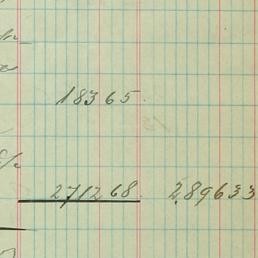 18365.
271268. 289633